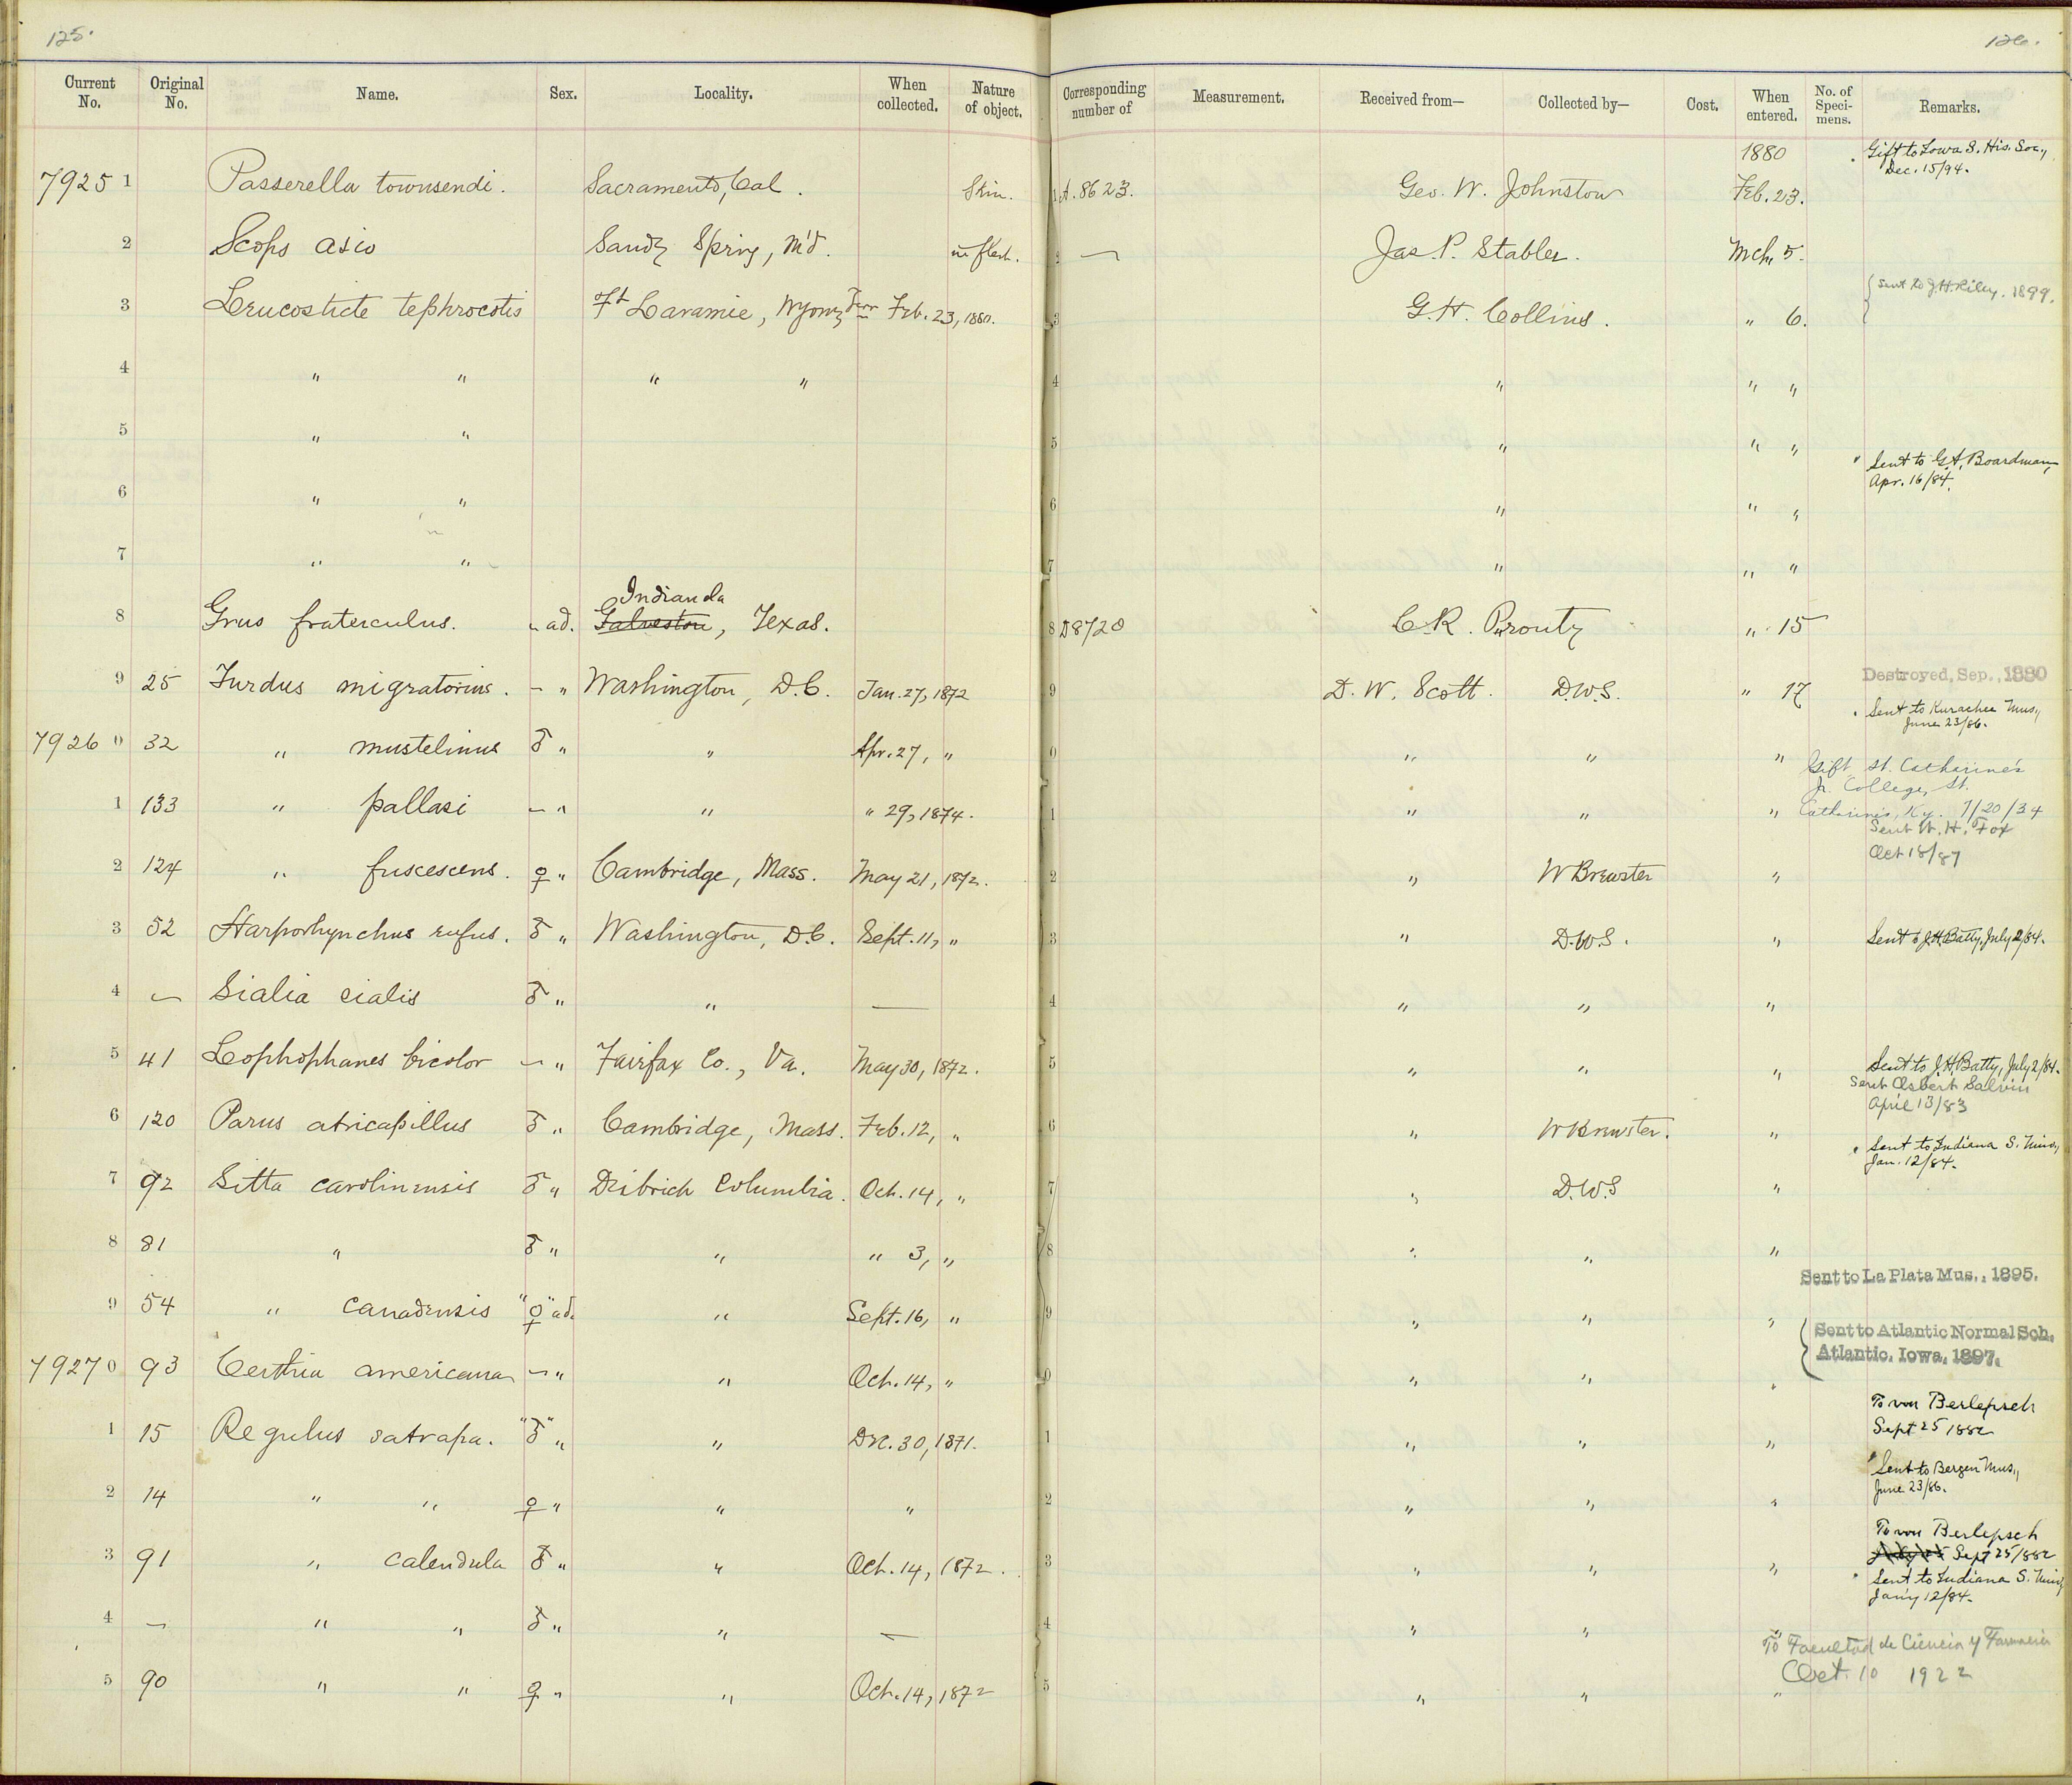 125.
126.
Current No. Original No. Name. Sex. Locality. When collected. Nature of object. Corresponding number of Measurement. Received from— Collected by— Cost. When entered. No. of Speci- mens. Remarks.
1880 Gift to Iowa S. His. Soc., Dec. 15/94.
7925 1 Passerella townsendi. Sacramento, Cal. Skin. 1 A. 8623. Geo. W. Johnston Feb. 23.
2 Scops asio Sandy Spring, Md. in flesh. 2 — Jas. P. Stabler. Mch. 5.
3 Leucosticte tephrocotis Ft Laramie, Wyomg Terr Feb. 23, 1880. 3 G. H. Collins. " 6. { Sent to J. H. Riley. 1899.
4 " " " " 4 " " "
5 " " 5 " " "
Sent to G. A. Boardman, Apr. 16/84.
6 " " 6 " " "
7 " " 7 " " "
Indianola
8 Grus fraterculus. – ad. Galveston, Texas. 8 D8720 C. R. Prouty " 15
9 25 Turdus migratorius. – " Washington, D.C. Jan. 27, 1872 9 D. W. Scott. D.W.S. " 17 Destroyed, Sep., 1880
Sent to Kurachee Mus., June 23/86.
7926 0 32 " mustelinus ♂ " " Apr. 27, " 0 " " "
Gift St. Catharine's Jr. College, St. Catharine's, Ky. 7/20/34
1 133 " pallasi – " " " 29, 1874. 1 " " "
Sent W. H. Fox Oct 18/87
2 124 " fuscescens. ♀ " Cambridge, Mass. May 21, 1872. 2 " W Brewster "
3 52 Harporhynchus rufus. ♂ " Washington, D.C. Sept. 11, " 3 " D.W.S. " Sent to J.H. Batty, July 2/84.
4 – Sialia sialis ♂ " " — 4 " " "
5 41 Lophophanes bicolor – " Fairfax Co., Va. May 30, 1872. 5 " " " Sent to J. H. Batty, July 2/84.
Sent Osbert Salvin April 13/83
6 120 Parus atricapillus ♂ " Cambridge, Mass. Feb. 12, " 6 " W Brewster. "
Sent to Indiana S. Univ., Jan. 12/84.
7 92 Sitta carolinensis ♂ " District Columbia. Oct. 14, " 7 " D.W.S "
8 81 " ♂ " " " 3, " 8 " " "
Sent to La Plata Mus., 1895.
9 54 " canadensis "♀" ad. " Sept. 16, " 9 " " "
{ Sent to Atlantic Normal Sch. Atlantic, Iowa, 1897.
7927 0 93 Certhia americana – " " Oct. 14, " 0 " " "
To von Berlepsch Sept 25 1882
1 15 Regulus satrapa. "♂" " " Dec. 30, 1871. 1 " " "
Sent to Bergen Mus., June 23/86.
2 14 " " ♀ " " " 2 " " "
To von Berlepsch
Sept 25/1882
3 91 " calendula ♂ " " Oct. 14, 1872. 3 " " "
Sent to Indiana S. Univ., Jan'y 12/84.
4 – " " ♂ " " — 4 " " "
To Facultad de Ciencia y Farmacia Oct. 10 1922
5 90 " " ♀ " " Oct. 14, 1872 5 " " "